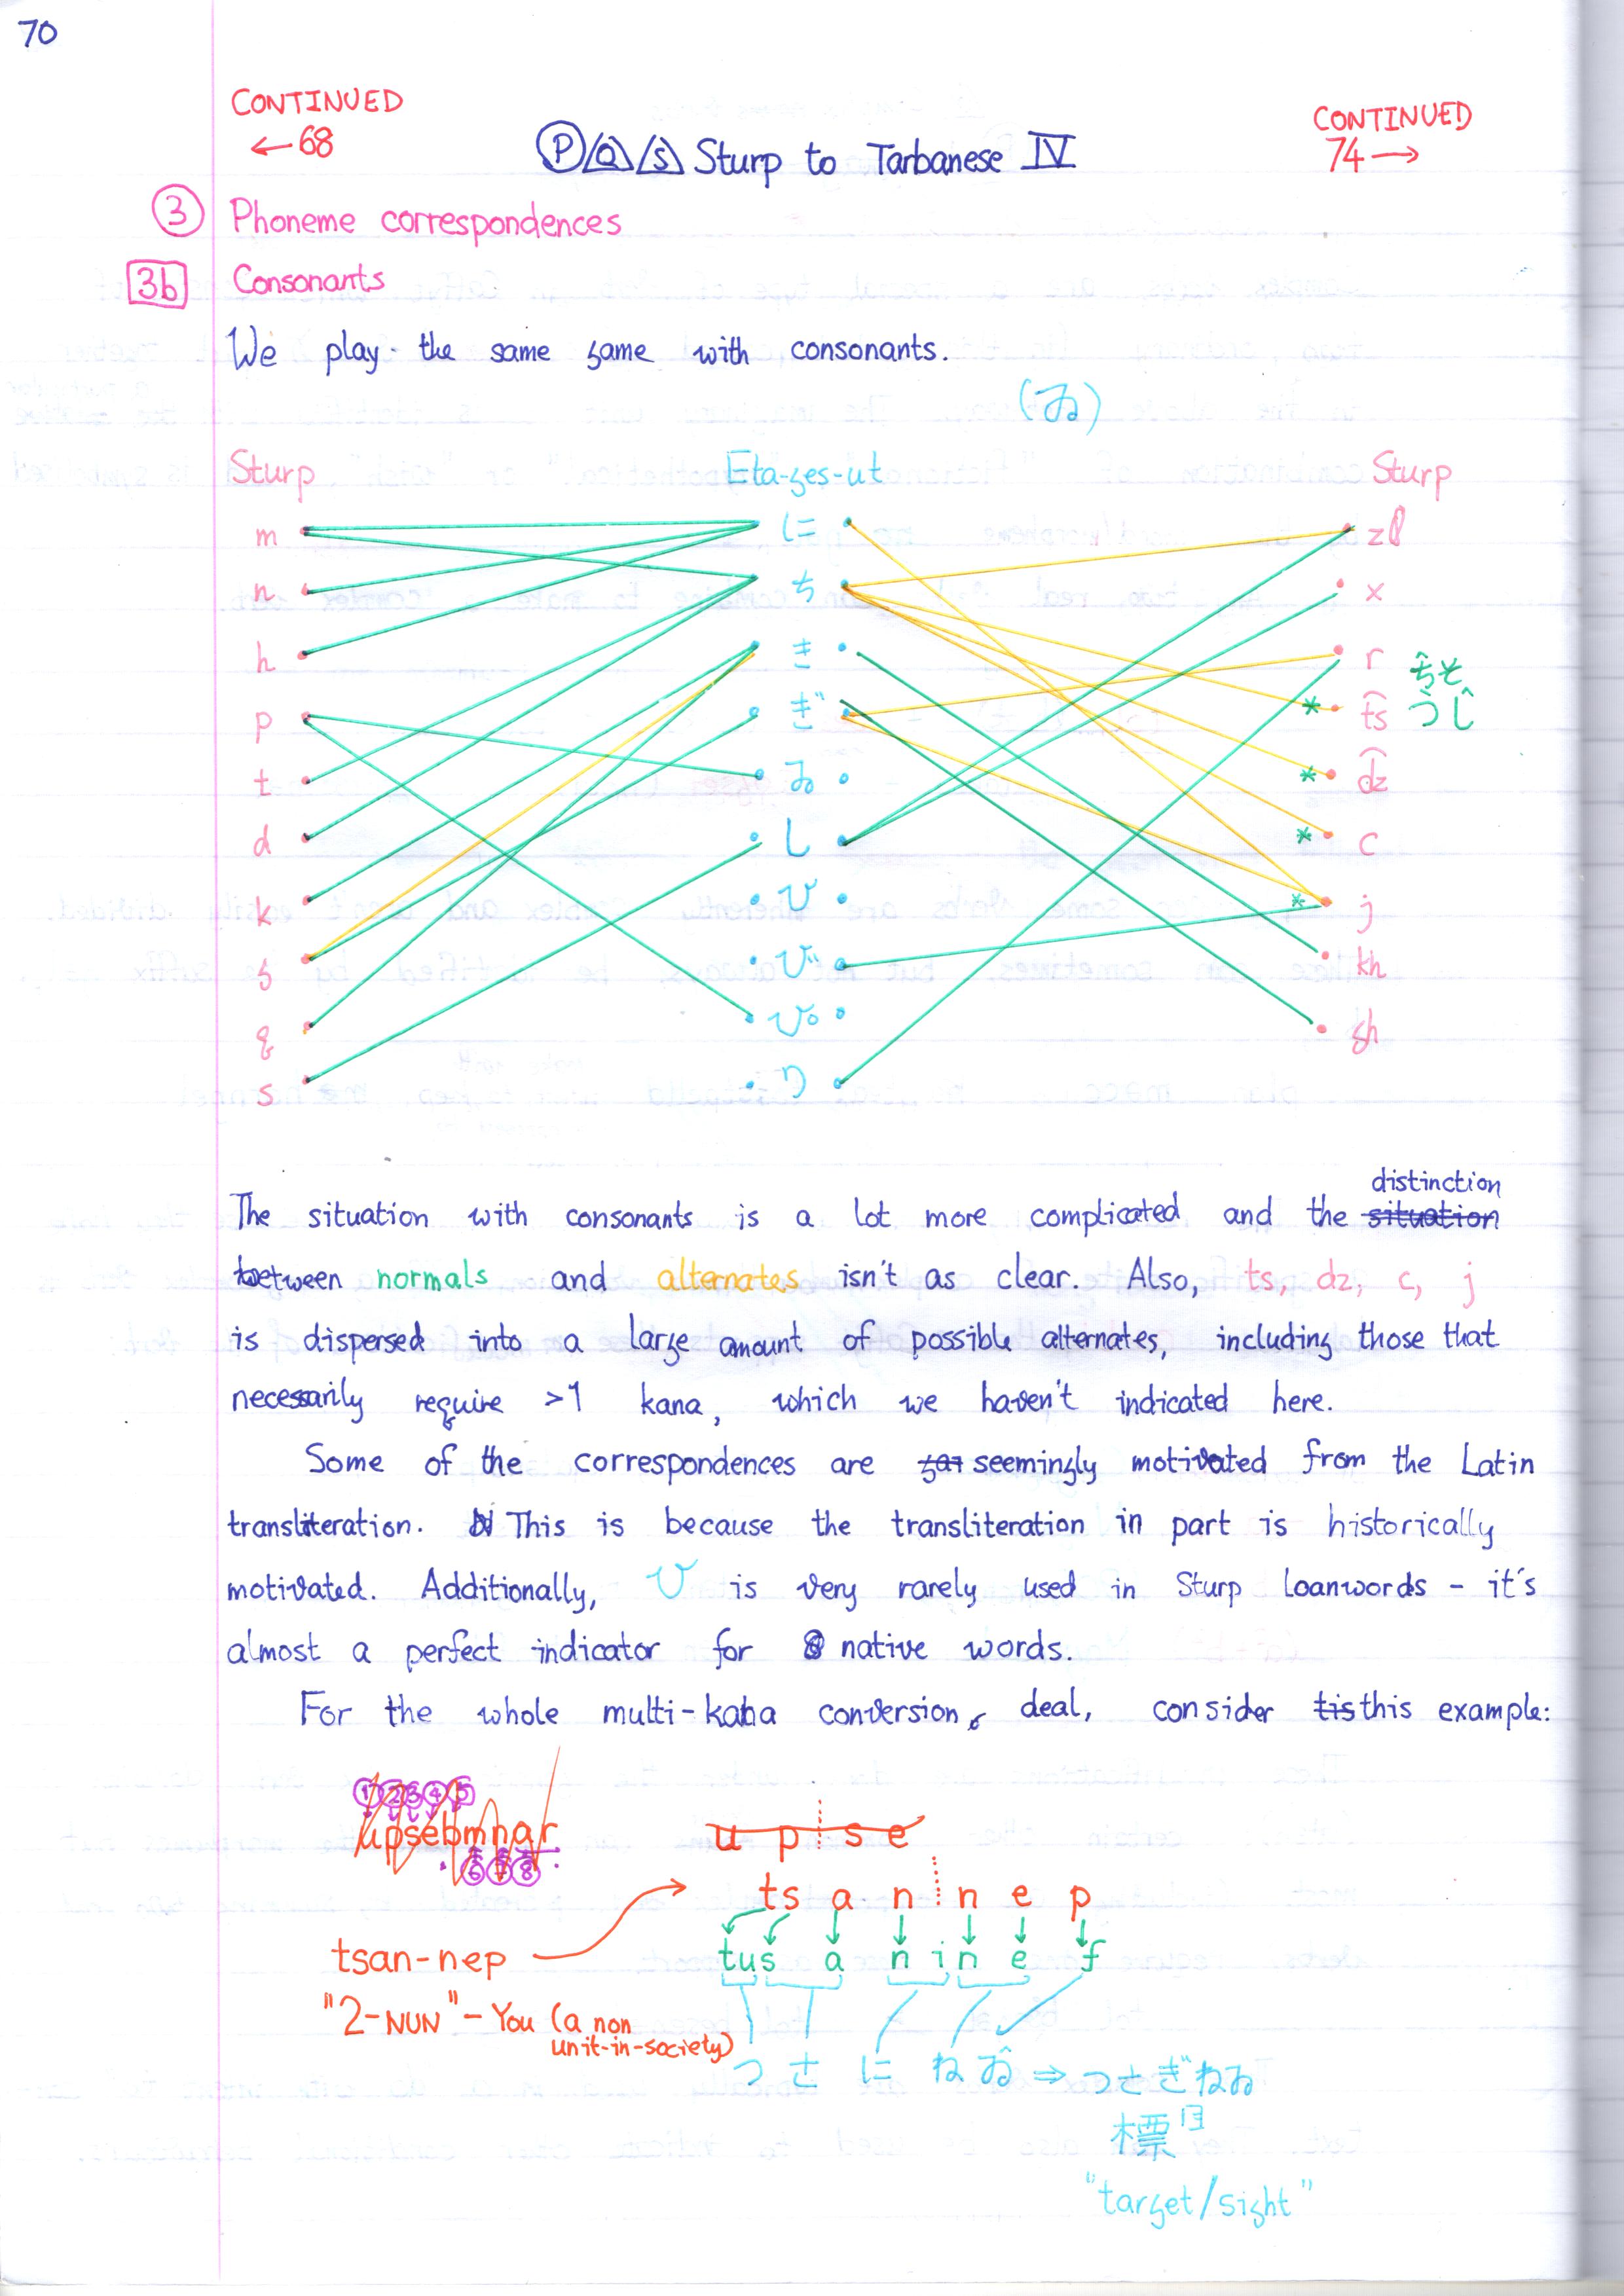 70
CONTINUED
←68
CONTINUED
74→
P Q S Sturp to Tarbanese IV
3 Phoneme correspondences
3b Consonants
We play the same game with consonants.
(ゐ)
Sturp Eta-ges-ut Sturp
m に zl
n ち x
h き r ち゚そ
p ぎ ts つじ
t ゐ dz
d し c
k ひ j
g び kh
q ぴ gh
s り
The situation with consonants is a lot more complicated and the situation distinction
between normals and alternates isn't as clear. Also, ts, dz, c, j
is dispersed into a large amount of possible alternates, including those that
necessarily require >1 kana, which we haven't indicated here.
Some of the correspondences are seemingly motivated from the Latin
transliteration. This is because the transliteration in part is historically
motivated. Additionally, ひ is very rarely used in Sturp loanwords - it's
almost a perfect indicator for native words.
For the whole multi-kana conversion deal, consider tis this example:
1 2 3 4 5
upsebmnar
6 7 8
u p s e
ts a n n e p
tsan-nep
tus a n i n e f
"2-NUN" - You (a non
unit-in-society)
つ さ に ね ゐ ⇒ つさぎねゐ
標目
"target/sight"